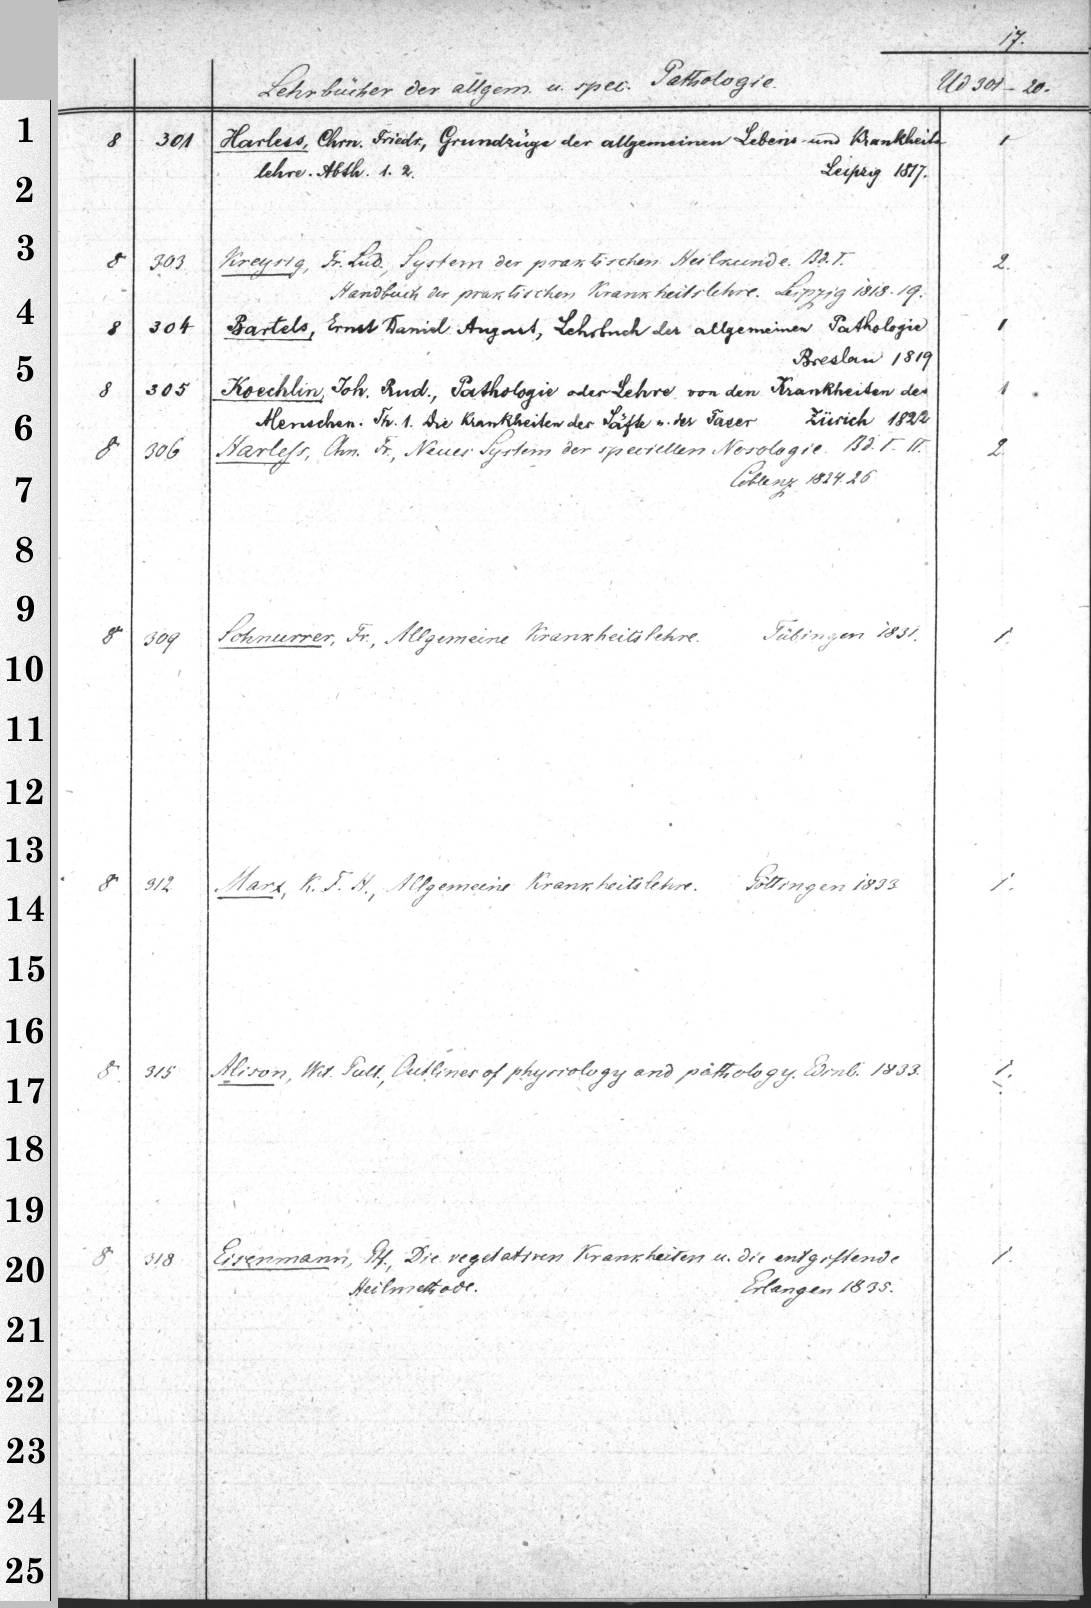 17.
Lehrbücher der allgem. u. spec. Pathologie. Ud 301-20.
1
8 301 Harless, Chrn. Friedr., Grundzüge der allgemeinen Lebens- und Krankheits- 1
lehre. Abth. 1. 2. Leipzig 1817.
2
3
8 303 Kreysig, Fr. Lud., System der praktischen Heilkunde. Bd. I. 2.
Handbuch der praktischen Krankheitslehre. Leipzig 1818-19.
4
8 304 Bartels, Ernst Daniel August, Lehrbuch der allgemeinen Pathologie 1
Breslau 1819
5
8 305 Koechlin, Joh. Rud., Pathologie oder Lehre von den Krankheiten des 1
6
Menschen. Th. 1. Die Krankheiten der Säfte u. der Faser Zürich 1822
8 306 Harless, Chn. Fr., Neues System der speciellen Nosologie. Bd. I. II. 2
7
Coblenz 1824.26
8
9
8 309 Schnurrer, Fr., Allgemeine Krankheitslehre. Tübingen 1831. 1.
10
11
12
13
8 312 Marx, K. F. H., Allgemeine Krankheitslehre. Göttingen 1833 1.
14
15
16
8 315 Alison, Wil. Pult., Outlines of physiology and pathology. Edinb. 1833. 1.
17
18
19
8 318 Eisenmann, Die vegetativen Krankheiten u. die entgiftende 1.
20
Heilmethode. Erlangen 1835.
21
22
23
24
25